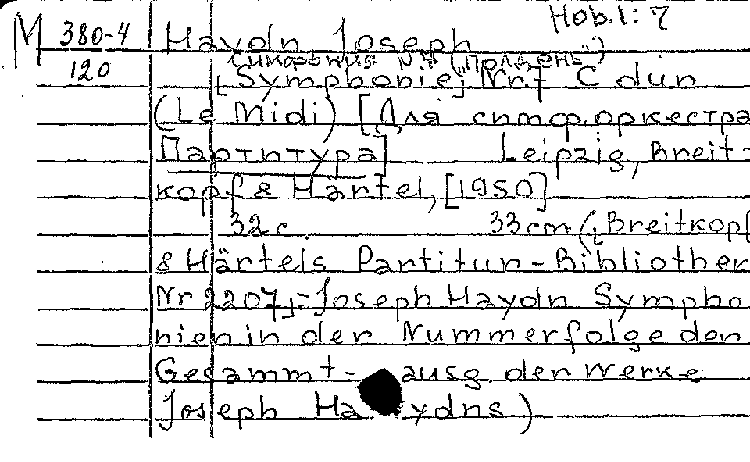 Hob. I: 7
М 380-4 Haydn Joseph
120 Симфония №7 ("Полдень")
[Symphonie] Nr.7 C dur
(Le Midi) [Для симф. оркестра
Партитура] Leipzig, Breit-
kopf & Härtel, [1950]
32 с. 33cm (Breitkopf
& Härtels Partitur-Bibliothek
Nr 2207, - Joseph Haydn Sympho
nien in der Nummerfolge der
Gesammt- ausg. der Werke
Joseph Haydns)